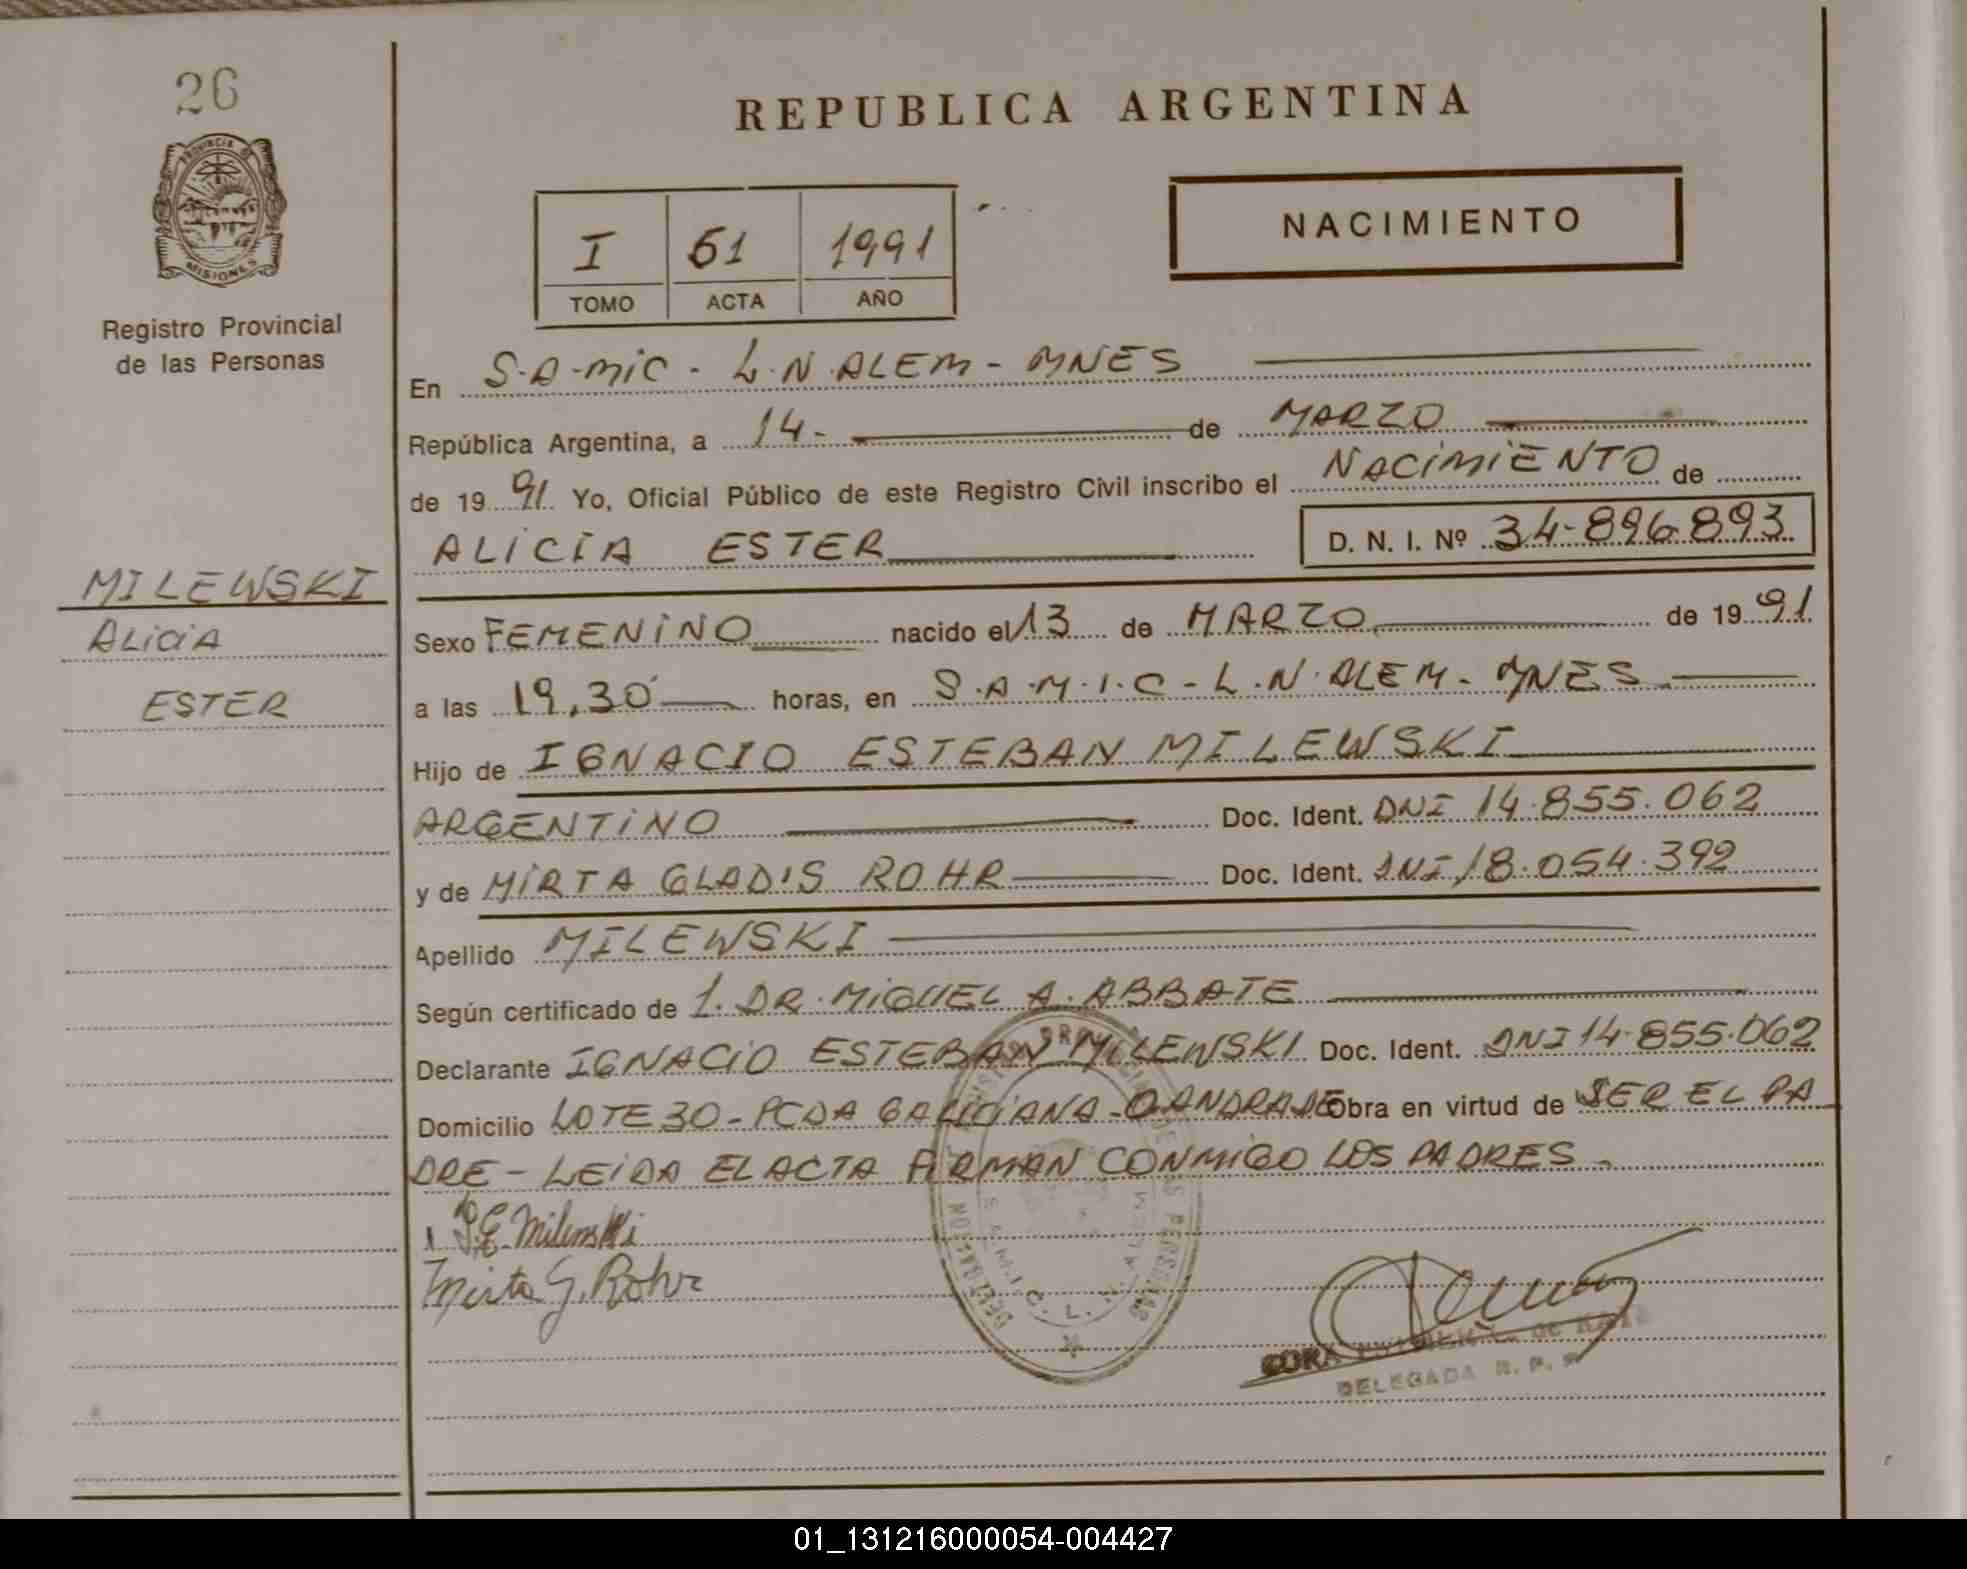 26
PROVINCIA DE
MISIONES
Registro Provincial
de las Personas
MILEWSKI
ALICIA
ESTER
REPUBLICA ARGENTINA
I 61 1991
TOMO ACTA AÑO
NACIMIENTO
En S.A.MIC - L.N.ALEM - MNES
República Argentina, a 14- de MARZO
de 1991 Yo, Oficial Público de este Registro Civil inscribo el NACIMIENTO de
ALICIA ESTER D. N. I. Nº 34-896.893
Sexo FEMENINO nacido el 13 de MARZO de 1991
a las 19,30 horas, en S.A.M.I.C - L.N.ALEM - MNES
Hijo de IGNACIO ESTEBAN MILEWSKI
ARGENTINO Doc. Ident. DNI 14.855.062
y de MIRTA GLADIS ROHR Doc. Ident. DNI 18.054.392
Apellido MILEWSKI
Según certificado de 1. DR. MIGUEL A. ABBATE
Declarante IGNACIO ESTEBAN MILEWSKI Doc. Ident. DNI 14.855.062
Domicilio LOTE 30 - PCDA GALICIANA - O ANDRADE Obra en virtud de SER EL PA
DRE - LEIDA EL ACTA FIRMAN CONMIGO LOS PADRES.
E. Milewski
Mirta G. Rohr
DELEGACION S.A.M.I.C. L. N. ALEM
DELEGADA R. P. P.
01_131216000054-004427